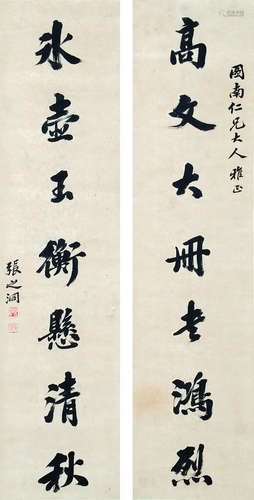 國南仁兄大人雅正
高文大冊書鴻烈
氷壺玉衡懸清秋
張之洞